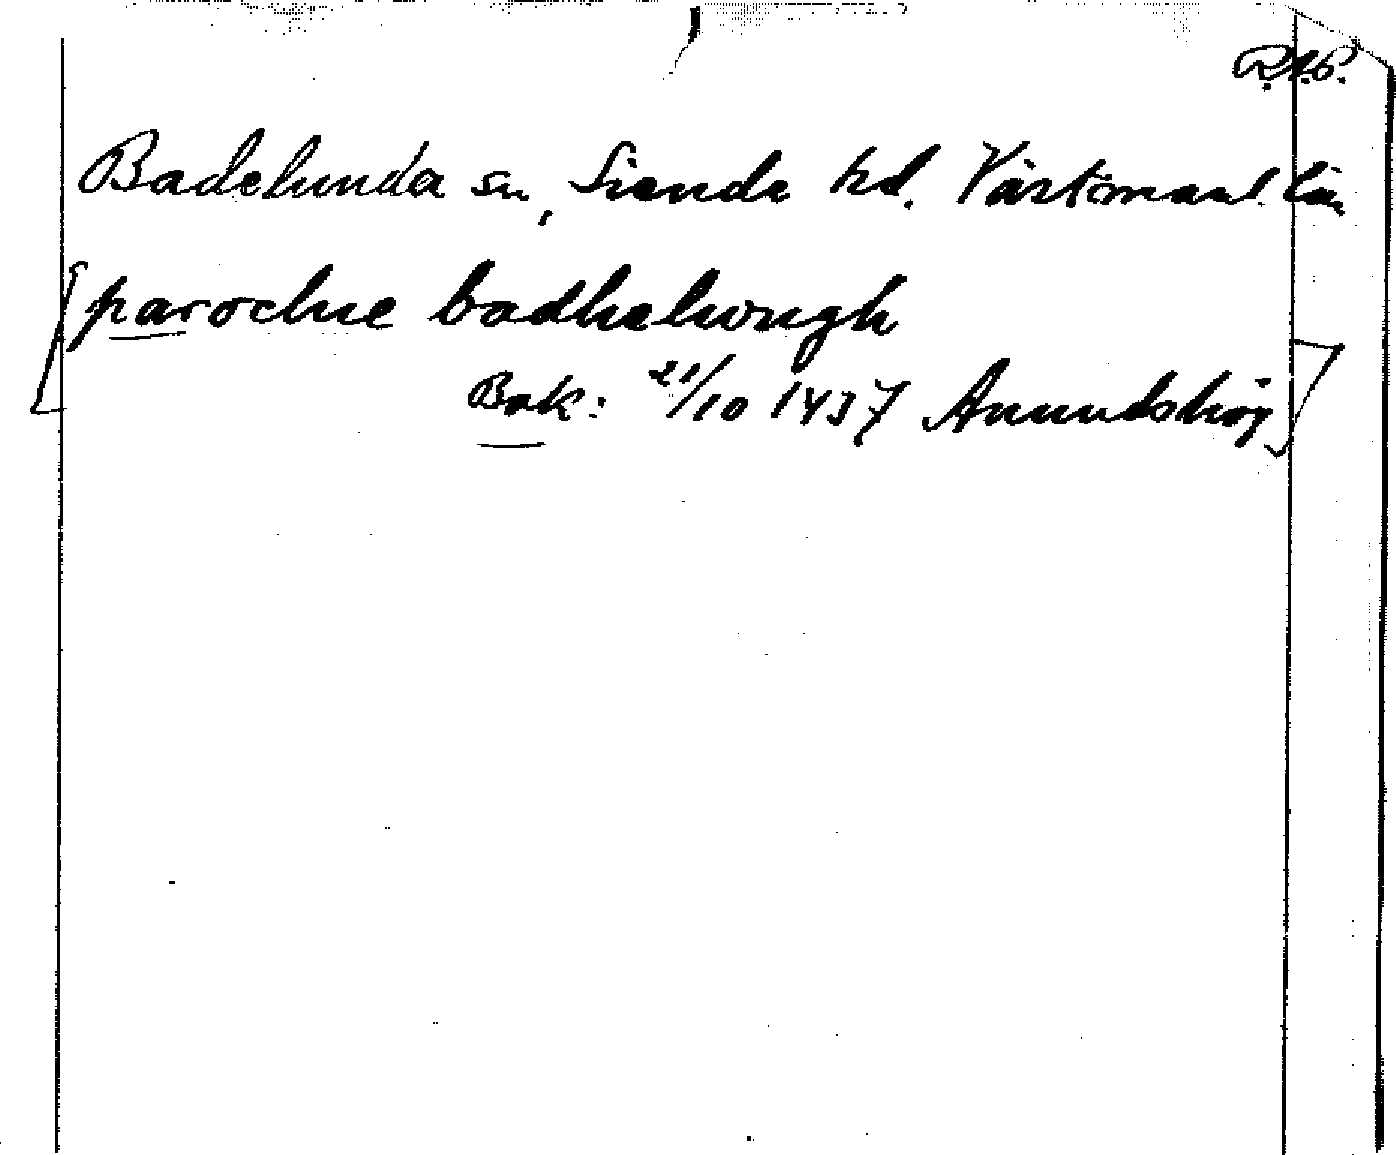 R.A.P.
Badelunda sn, Siende hd. Västmanl. län
[parochie badhelwngh
Bak: 21/10 1437 Anundshög]